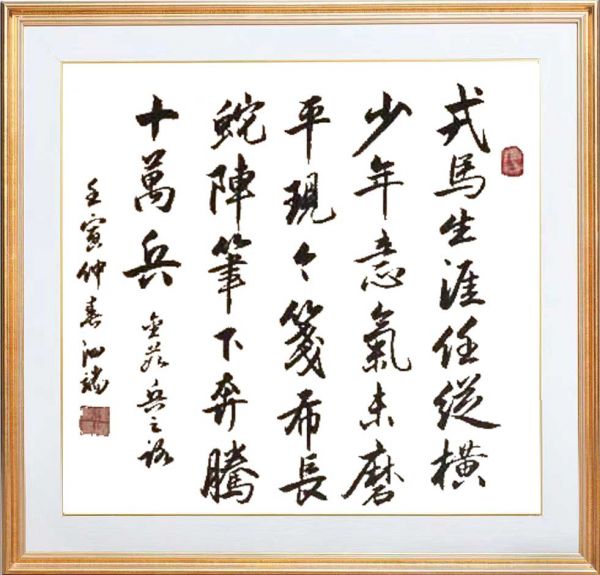 戎馬生涯任縱橫
少年意氣未磨
平現今箋布長
蛇陣筆下奔騰
十萬兵 兵之
壬寅仲春